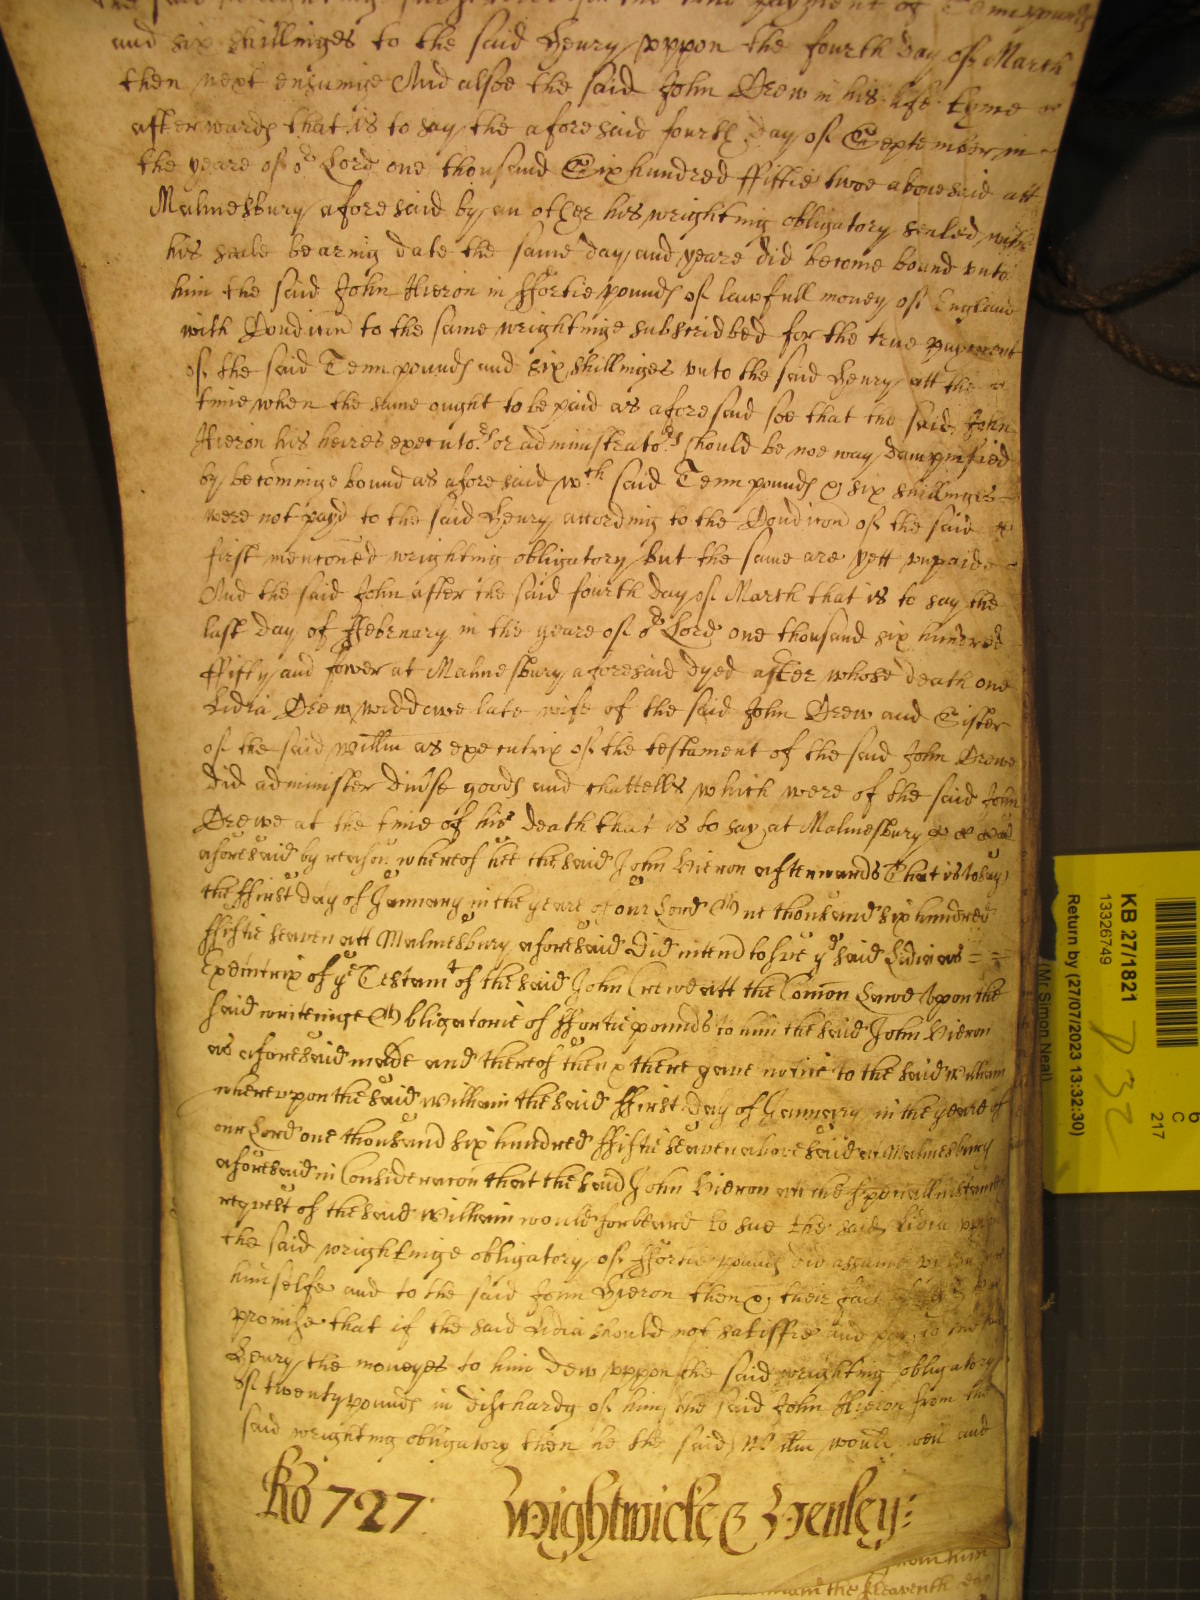 payment of Tenn pounds
and six shillinges to the said Henry uppon the fourth day of March
then next ensuinge And alsoe the said John Drew in his life tyme
afterwards that is to say the aforesaid fourth day of September in
the yeare of or Lord one thousand Six hundred ffiftie twoe abovesaid att
Malmesbury aforesaid by an other his wrighting obligatory sealed with
his seale bearing date the same day and yeare did become bound unto
him the said John Hieron in ffortie pounds of lawfull money of England
with Condicon to the same wrightinge subscribbed for the true payment
of the said Tenn pounds and six shillinges unto the said Henry att the
time when the same ought to be paid as aforesaid soe that the said John
Hieron his heires executors or administrators should be noe way dampnified
by becominge bound as aforesaid wch said Tenn pounds & six shillinges
were not payd to the said Henry according to the Condicon of the said
first menconed wrighting obligatory but the same are yett unpaide
And the said John after the said fourth day of March that is to say the
last day of February in the yeare of or Lord one thousand six hundred
ffifty and fower at Malmesbury aforesaid dyed after whose death one
Lidia Drew widdowe late wife of the said John Drew and Sister
of the said Willm as executrix of the testament of the said John Drewe
did administer divrse goods and chattells which were of the said John
Drewe at the time of his death that is to say at Malmesbury
aforesaid by reason whereof hee the said John Hieron afterwards That is to say
the ffirst day of January in the yeare of our Lord One thousand six hundred
ffiftie seaven att Malmesbury aforesaid did intend to sue ye said Lidia as
Executrix of ye Testamt of the said John Drewe att the Comon Lawe Upon the
said writeinge Obligatorie of ffortie pounds to him the said John Hieron
as aforesaid made and thereof then & there gave notice to the said William
whereupon the said William the said ffirst day of January in the yeare of
our Lord one thousand six hundred ffiftie seaven abovesaid at Malmesbury
aforesaid in Consideracon that the said John Hieron att the speciall instance
request of the said William would forbeare to sue the said Lidia uppon
the said wrightinge obligatory of ffortie pounds did assume upon
himselfe and to the said John Hieron then & there
promise that if the said Lidia should not satisfie and pay to the said
Henry the moneyes to him dew uppon the said wrighting obligatory
of twenty pounds in dischardg of him the said John Hieron from the
said wrighting obligatory then he the said Willm would well and
Ro 727 Wightwicke & Henley:
from him
the Eleaventh day
KB 27/1821
13326749
Return by (27/07/2023 13:32:30)
(Mr Simon Neal)
C
217
P 32